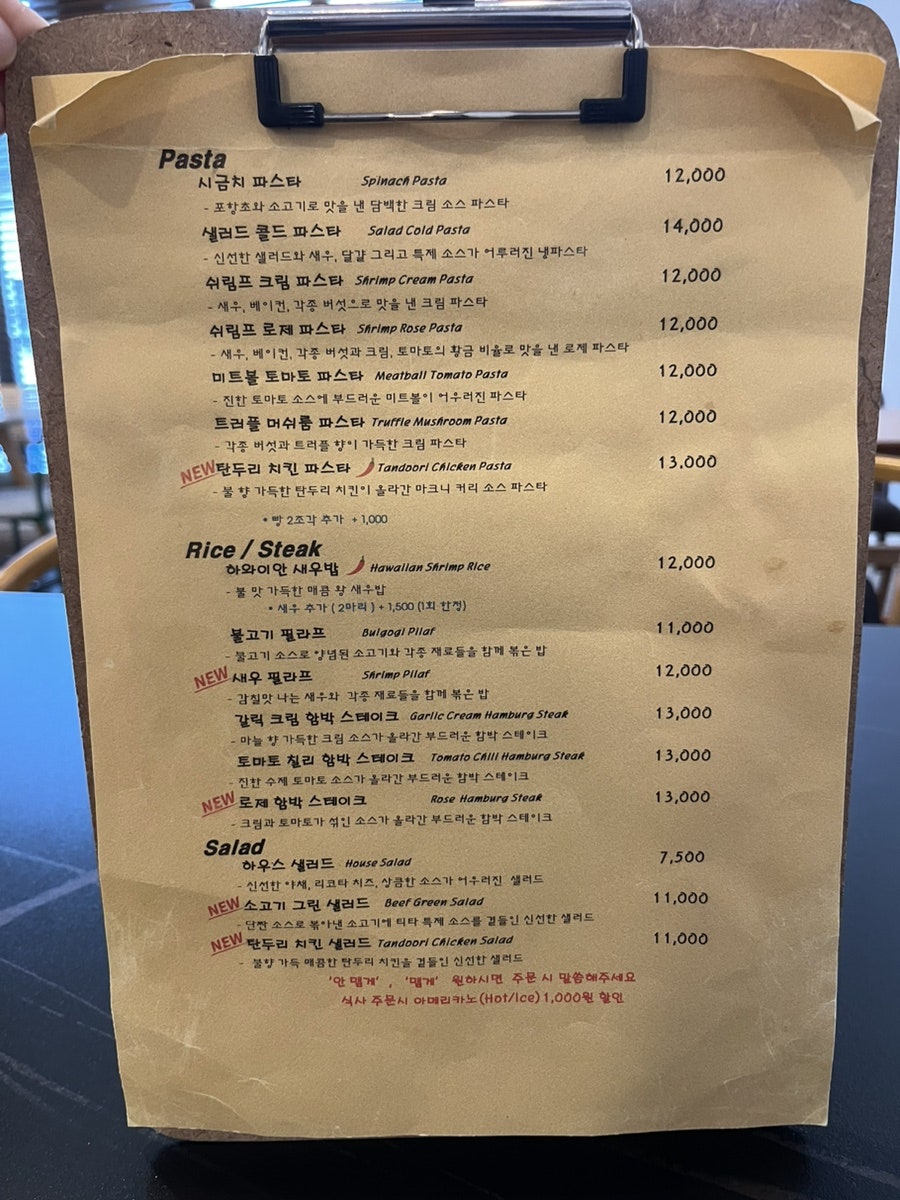 Pasta
시금치 파스타 Spinach Pasta 12,000
- 포항초와 소고기로 맛을 낸 담백한 크림 소스 파스타
샐러드 콜드 파스타 Salad Cold Pasta 14,000
- 신선한 샐러드와 새우, 달걀 그리고 특제 소스가 어루러진 냉파스타
쉬림프 크림 파스타 Shrimp Cream Pasta 12,000
- 새우, 베이컨, 각종 버섯으로 맛을 낸 크림 파스타
쉬림프 로제 파스타 Shrimp Rose Pasta 12,000
- 새우, 베이컨, 각종 버섯과 크림, 토마토의 황금 비율로 맛을 낸 로제 파스타
미트볼 토마토 파스타 Meatball Tomato Pasta 12,000
- 진한 토마토 소스에 부드러운 미트볼이 어우러진 파스타
트러플 머쉬룸 파스타 Truffle Mushroom Pasta 12,000
- 각종 버섯과 트러플 향이 가득한 크림 파스타
NEW 탄두리 치킨 파스타 Tandoori Chicken Pasta 13.000
- 불 향 가득한 탄두리 치킨이 올라간 마크니 커리 소스 파스타
* 빵 2조각 추가 + 1,000
Rice / Steak
하와이안 새우밥 Hawaiian Shrimp Rice 12,000
- 불 맛 가득한 매콤 왕 새우밥
* 새우 추가 ( 2마리 ) + 1,500 (1회 한정)
불고기 필라프 Bulgogi Pilaf 11,000
- 불고기 소스로 양념된 소고기와 각종 재료들을 함께 볶은 밥
NEW 새우 필라프 Shrimp Pilaf 12,000
- 감칠맛 나는 새우와 각종 재료들을 함께 볶은 밥
갈릭 크림 함박 스테이크 Garlic Cream Hamburg Steak 13,000
- 마늘 향 가득한 크림 소스가 올라간 부드러운 함박 스테이크
토마토 칠리 함박 스테이크 Tomato Chili Hamburg Steak 13,000
- 진한 수제 토마토 소스가 올라간 부드러운 함박 스테이크
NEW 로제 함박 스테이크 Rose Hamburg Steak 13,000
- 크림과 토마토가 섞인 소스가 올라간 부드러운 함박 스테이크
Salad
하우스 샐러드 House Salad 7,500
- 신선한 야채, 리코타 치즈, 상큼한 소스가 어우러진 샐러드
NEW 소고기 그린 샐러드 Beef Green Salad 11,000
- 단짠 소스로 볶아낸 소고기에 티타 특제 소스를 곁들인 신선한 샐러드
NEW 탄두리 치킨 샐러드 Tandoori Chicken Salad 11,000
- 불향 가득 매콤한 탄두리 치킨을 곁들인 신선한 샐러드
'안 맵게' , '맵게' 원하시면 주문 시 말씀해주세요
식사 주문시 아메리카노(Hot/ice) 1,000원 할인